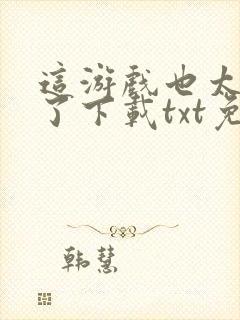 這游戲也太
了下載txt免
韩慧